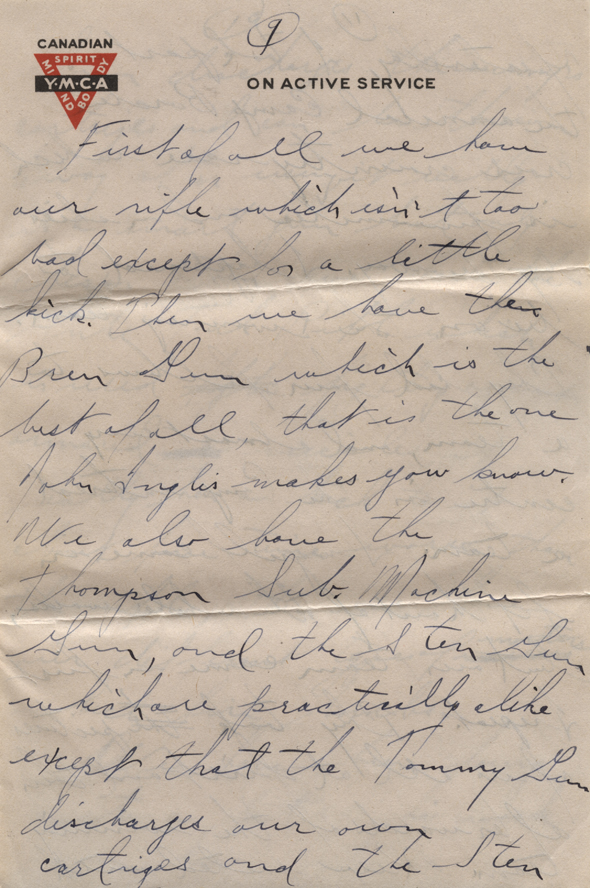 9
CANADIAN
SPIRIT
MIND
BODY
Y·M·C·A
ON ACTIVE SERVICE
First of all we have
our rifle which isn't too
bad except for a little
kick. Then we have the
Bren Gun which is the
best of all, that is the one
John Inglis makes you know.
We also have the
Thompson Sub. Machine
Gun, and the Sten Gun
which are practically alike
except that the Tommy Gun
discharges our own
cartriges and the Sten